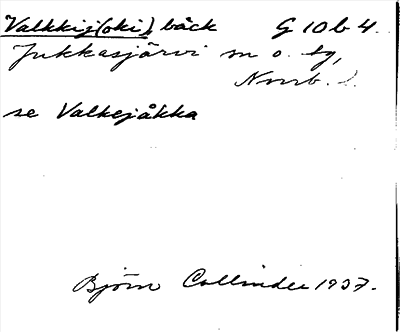 Valkkij(oki), bäck G 10 b 4.
Jukkasjärvi sn o. tg,
Norrb. l.
se Valkejåkka
Björn Collinder 1937.